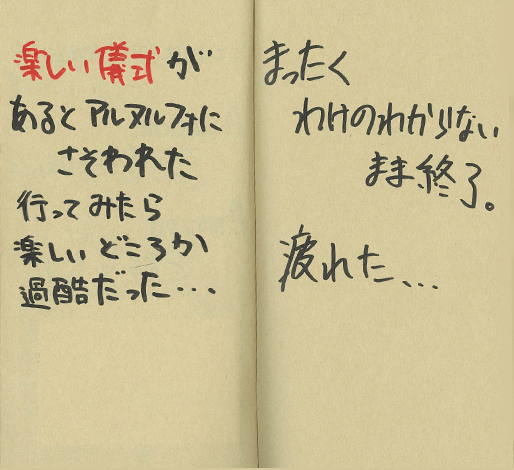 楽しい儀式が
あるとアルヌルフォに
さそわれた
行ってみたら
楽しいどころか
過酷だった・・・
まったく
わけのわからない
まま終了。
疲れた、...